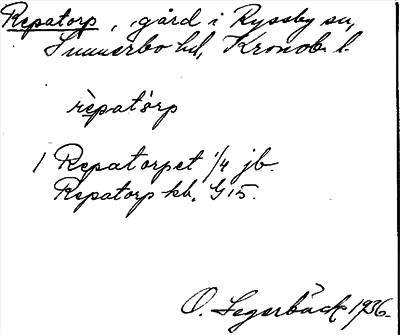 Repatorp, gård i Ryssby sn,
Sunnerbo hd, Kronob. l.
rèpatårp
1 Repatorpet 1/4 jb.
Repatorp kb. G 15.
O. Segerbäck 1936.